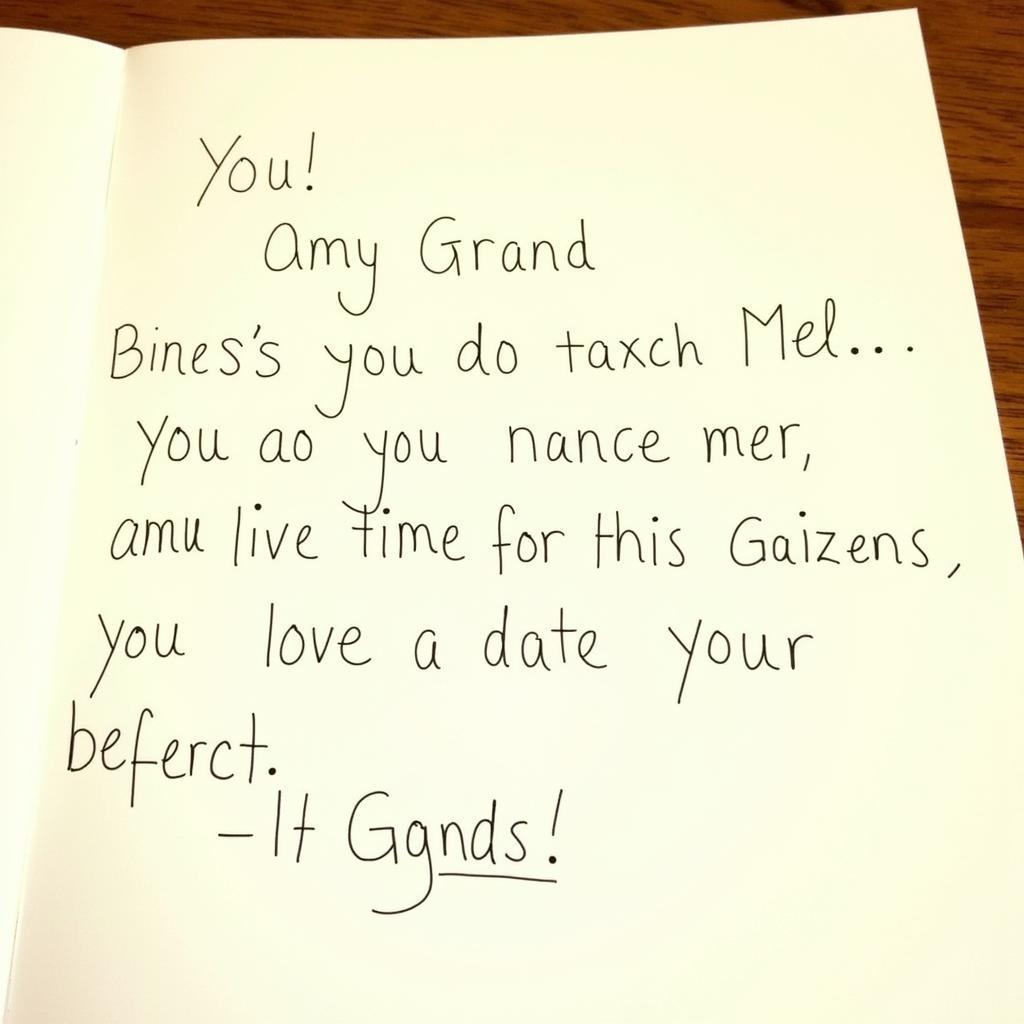 You!
amy Grand
Bines's you do taxch Mel...
you ao you nance mer,
amu live time for this Gaizens,
you love a date your
beferct.
– It Ggnds!